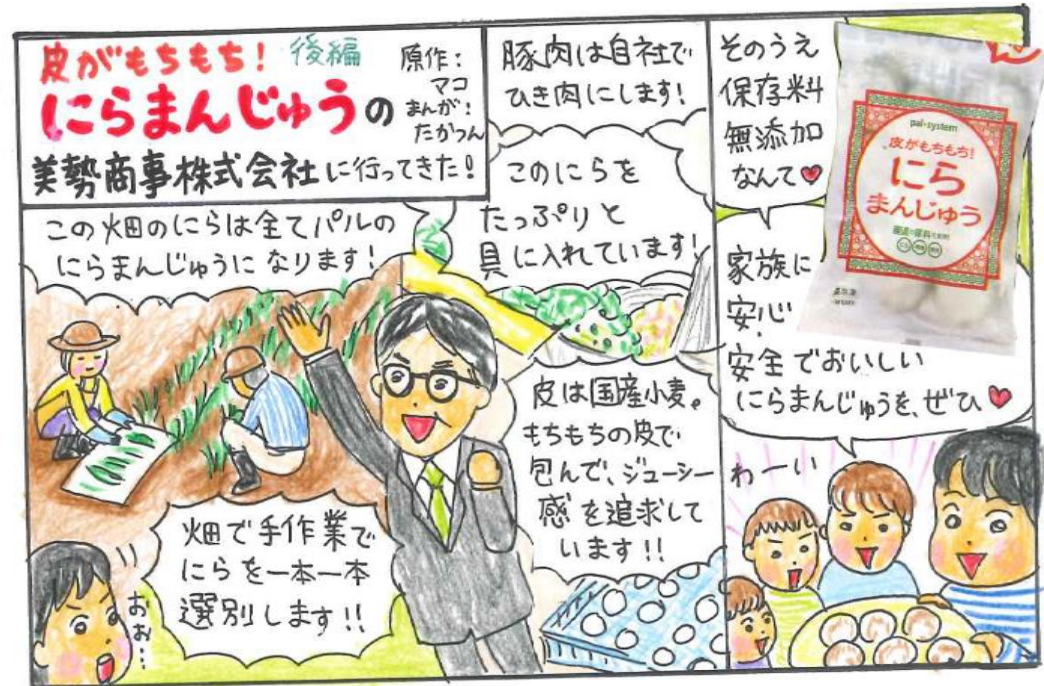 皮がもちもち! 後編
にらまんじゅうの
美勢商事株式会社に行ってきた!
原作:
マコ
まんが:
たかつん
この畑のにらは全てパルの
にらまんじゅうになります!
畑で手作業で
にらを一本一本
選別します!!
おお…
豚肉は自社で
ひき肉にします!
このにらを
たっぷりと
具に入れています!
皮は国産小麦。
もちもちの皮で
包んで、ジューシー
感を追求して
います!!
そのうえ
保存料
無添加
なんて♥
pal*system
皮がもちもち!
にら
まんじゅう
家族に
安心
安全でおいしい
にらまんじゅうを、ぜひ♥
わーい